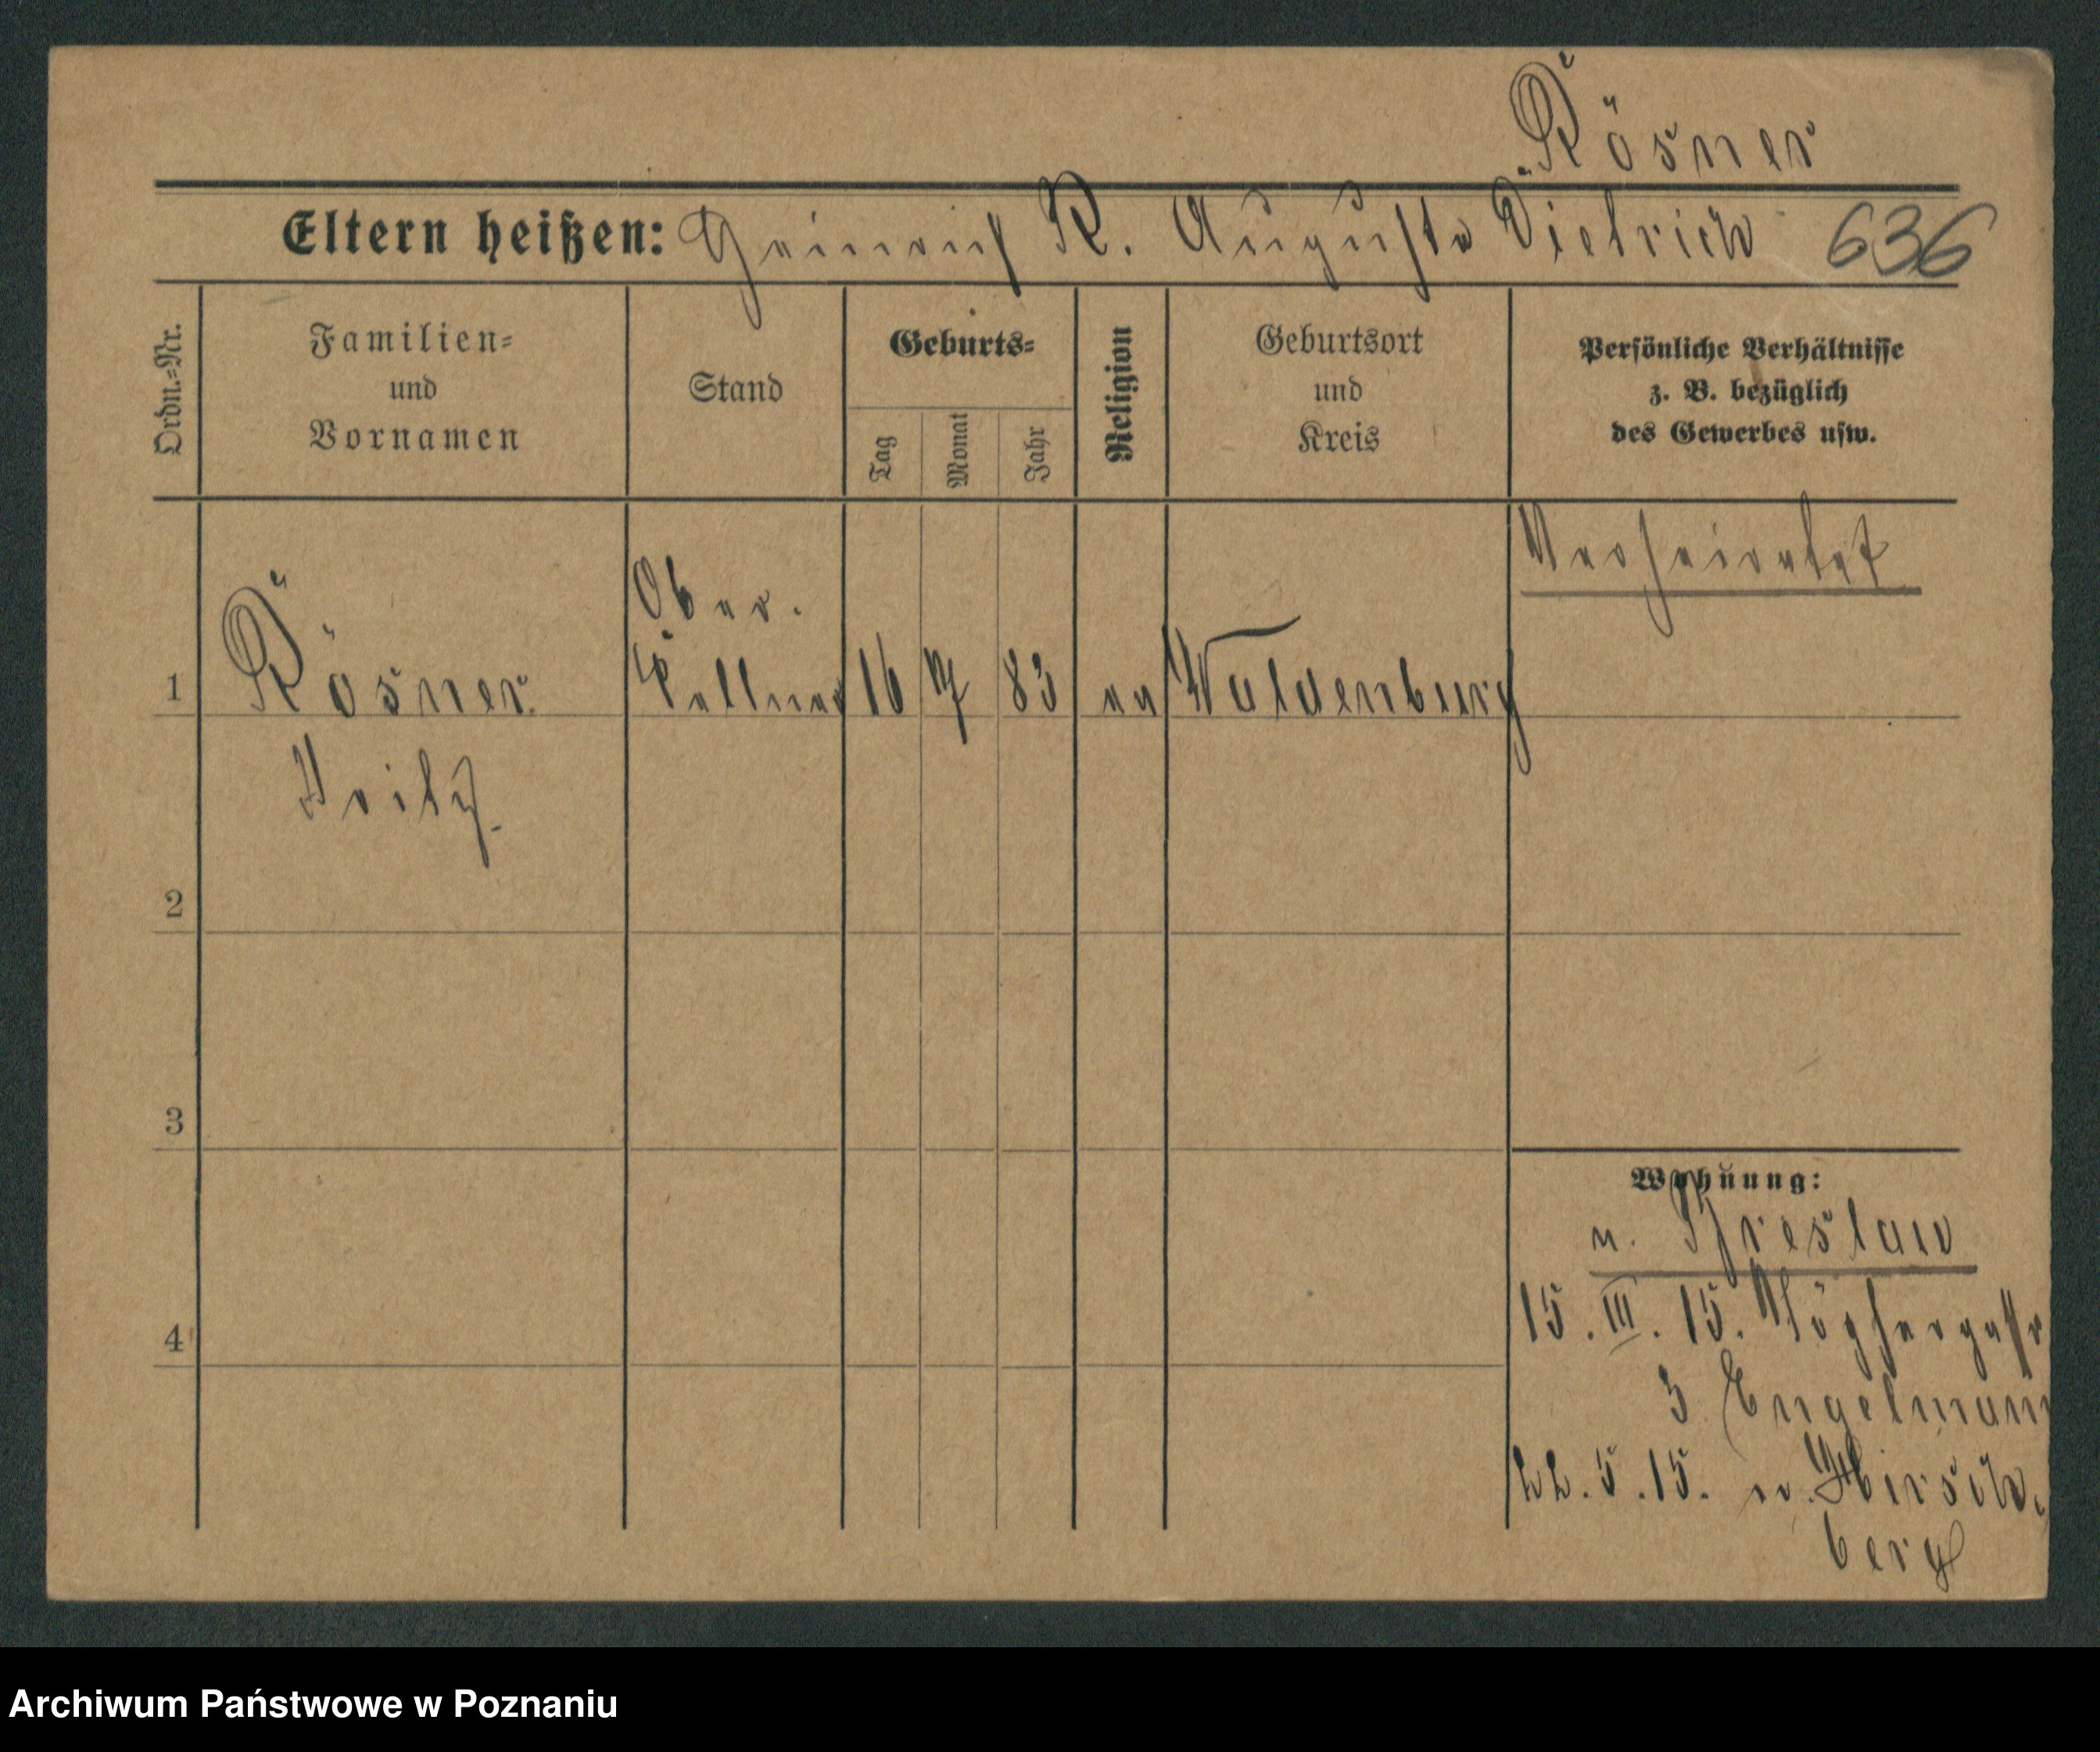 Rösner
Eltern heißen: Heinrich R. Auguste Dietrich 636
Ordn.-Nr.
Familien-
und
Vornamen
Stand
Geburts-
Tag
Monat
Jahr
Religion
Geburtsort
und
Kreis
Persönliche Verhältnisse
z. B. bezüglich
des Gewerbes usw.
Verheiratet
Ober.
1 Rösner Kellner 16 7 83 ev Waldenburg
Fritz
2
3
4
Wohnung:
n. Breslau
15. III. 15.
3 Engelmann
22. 5. 15. n. Hirsch.
berg
Archiwum Państwowe w Poznaniu